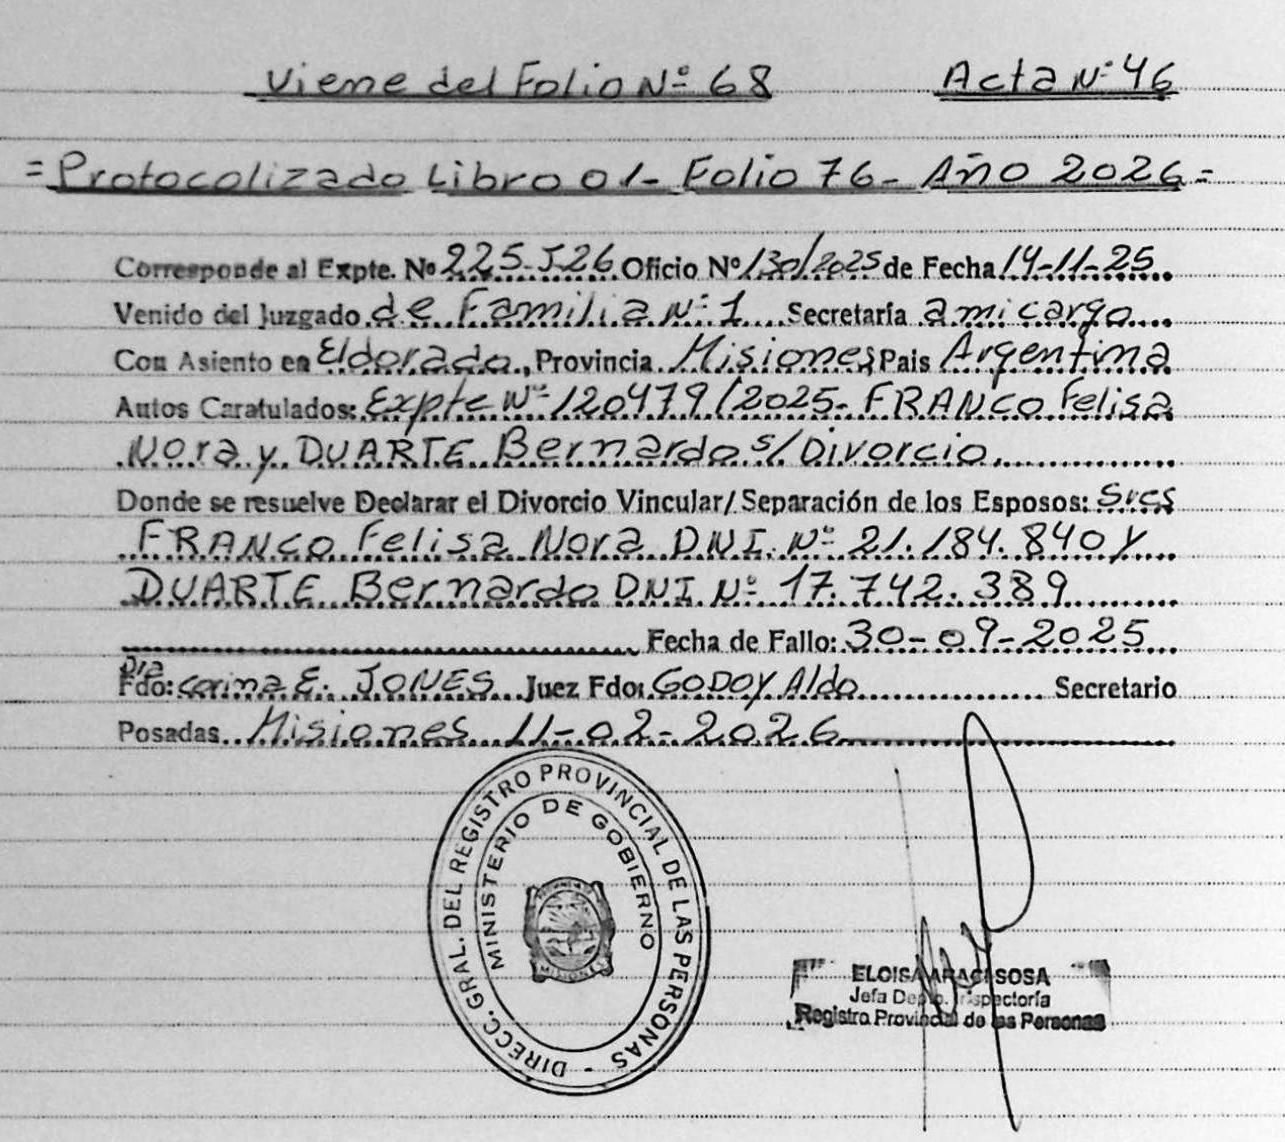 Viene del Folio Nº 68 Acta Nº 46
= Protocolizado Libro 01- Folio 76- Año 2026 =
Corresponde al Expte. Nº 225-J-26 Oficio Nº 130/2025 de Fecha 14-11-25
Venido del Juzgado de Familia Nº 1 Secretaría a mi cargo
Con Asiento en Eldorado, Provincia Misiones, Pais Argentina
Autos Caratulados: Expte Nº 120479/2025- FRANCO Felisa
Nora y DUARTE Bernardo s/ Divorcio.
Donde se resuelve Declarar el Divorcio Vincular/ Separación de los Esposos: Sres
FRANCO Felisa Nora D.N.I. Nº 21.184.840 y
DUARTE Bernardo DNI Nº 17.742.389
Fecha de Fallo: 30-09-2025
Dra
Fdo: Corina E. JONES Juez Fdo: GODOY Aldo Secretario
Posadas Misiones 11-02-2026
DIRECC. GRAL. DEL REGISTRO PROVINCIAL DE LAS PERSONAS -
MINISTERIO DE GOBIERNO
MISIONES
ELOISA ARACI SOSA
Jefa Depto. Inspectoría
Registro Provincial de las Personas